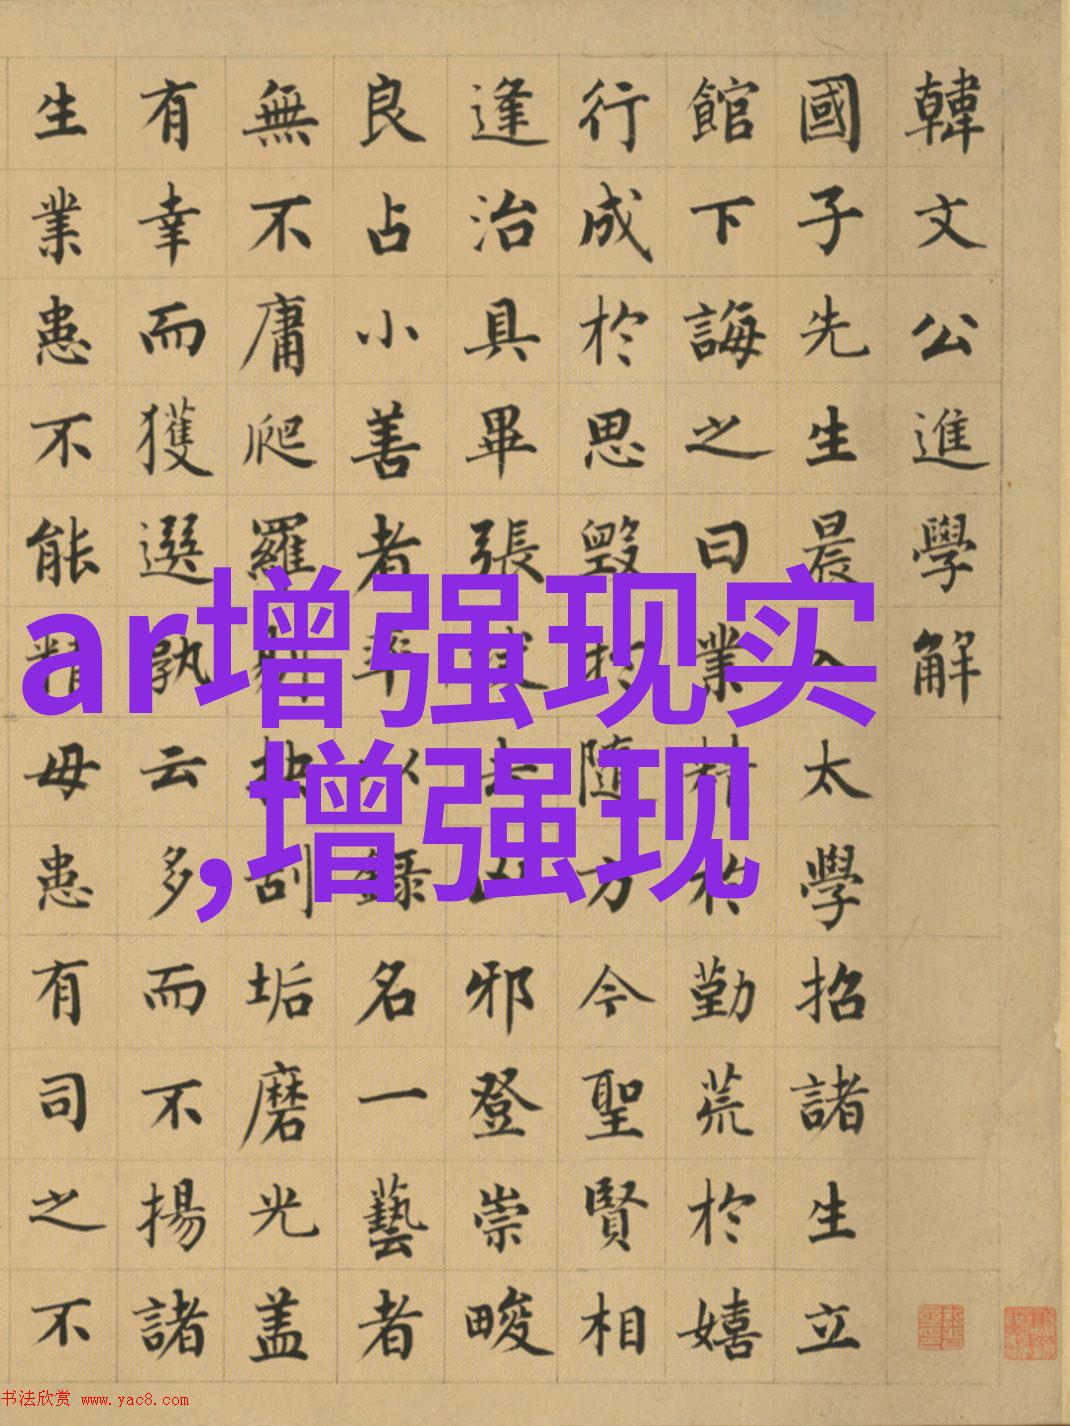 韓文公進學解
國子先生晨入太學招諸生立
館下誨之曰業精於勤荒於嬉
行成於思毀於隨方今聖賢相
逢治具畢張拔去凶邪登崇畯
良占小善者率以錄名一藝者
無不庸爬羅剔抉刮垢磨光盖
有幸而獲選孰云多而不揚諸
生業患不能精毋患有司之不
ar增强现实
,增强现
书法欣赏 www.yac8.com